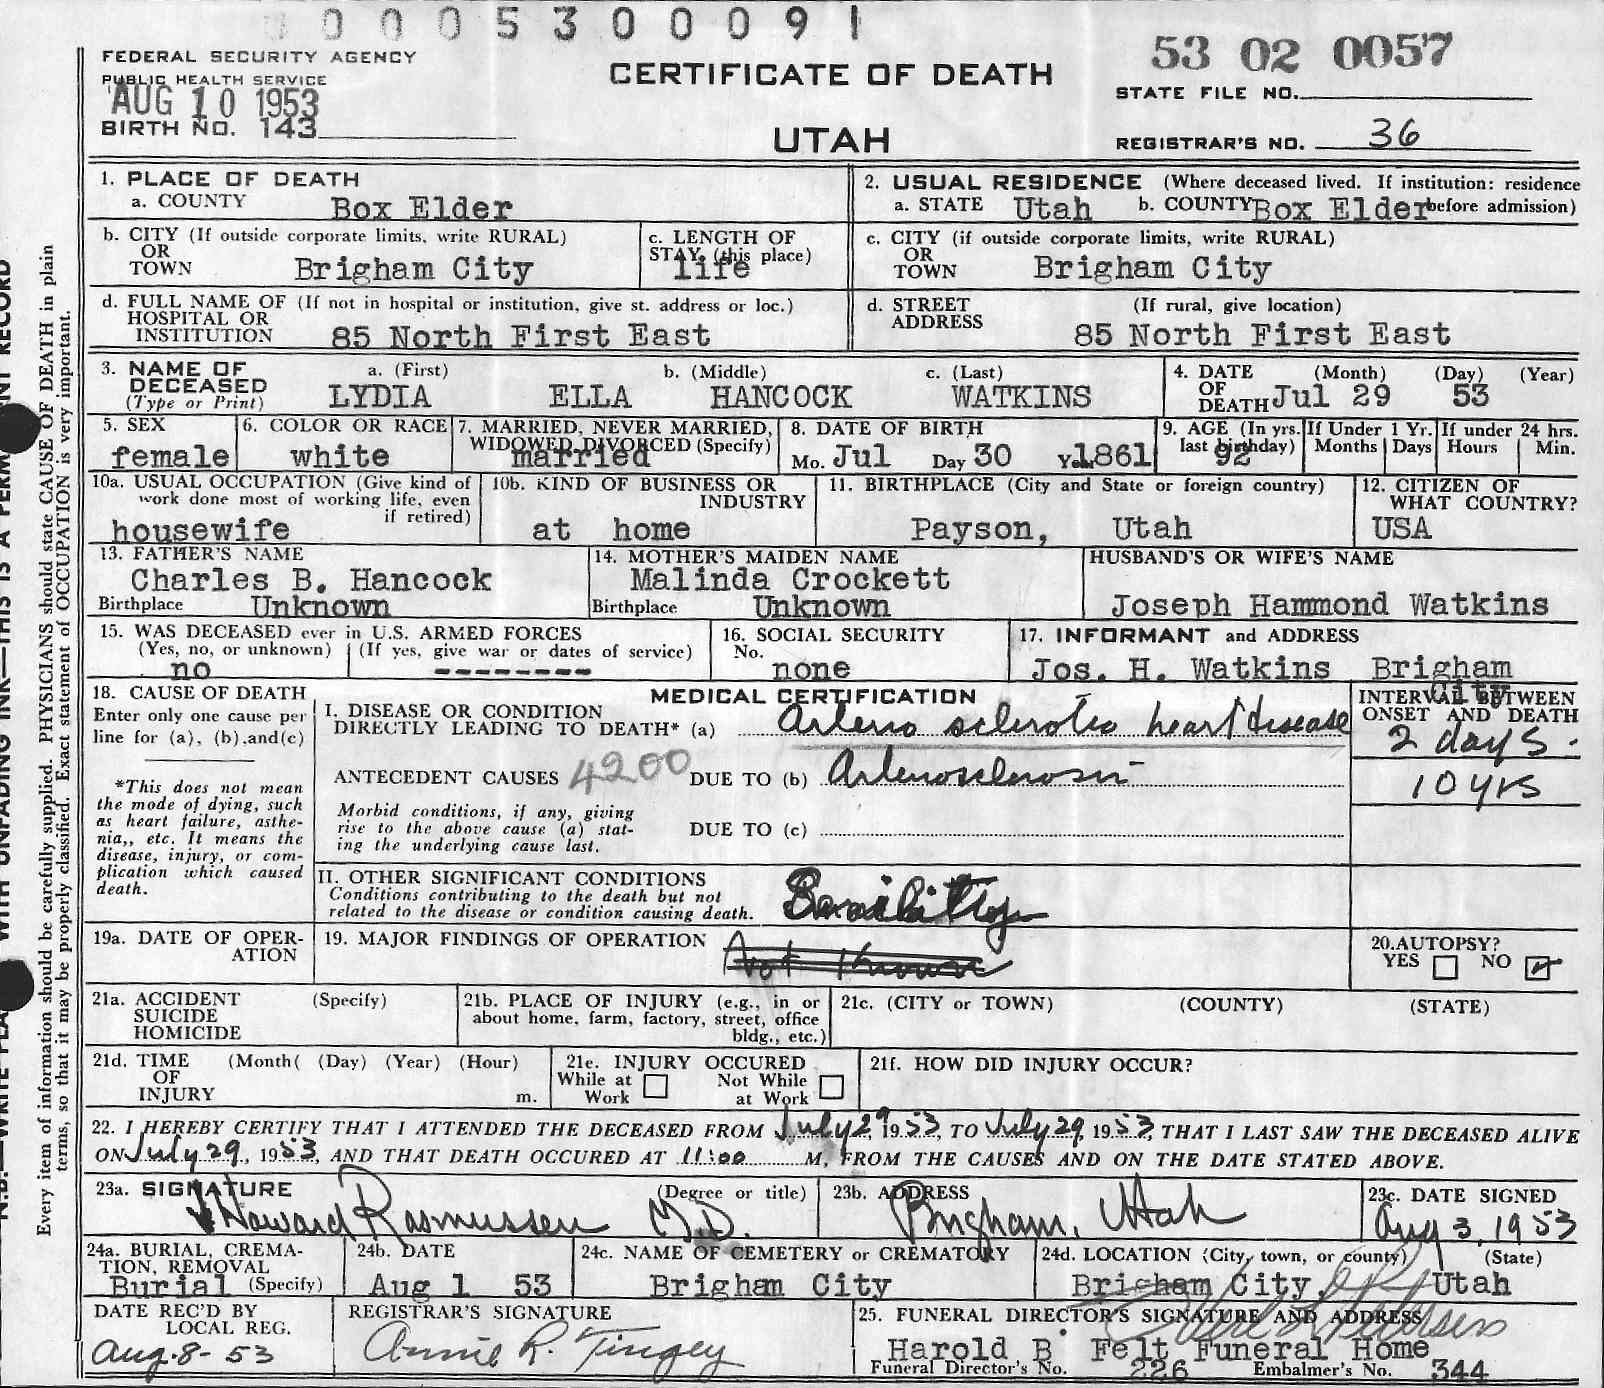 0 0 0 5 3 0 0 0 9 1
FEDERAL SECURITY AGENCY
PUBLIC HEALTH SERVICE
AUG 10 1953
BIRTH NO. 143
CERTIFICATE OF DEATH
UTAH
53 02 0057
STATE FILE NO.
REGISTRAR'S NO. 36
1. PLACE OF DEATH
a. COUNTY Box Elder
2. USUAL RESIDENCE (Where deceased lived. If institution: residence
a. STATE Utah b. COUNTY Box Elder before admission)
b. CITY (If outside corporate limits, write RURAL)
OR
TOWN Brigham City
c. LENGTH OF
STAY (this place)
life
c. CITY (if outside corporate limits, write RURAL)
OR
TOWN Brigham City
d. FULL NAME OF (If not in hospital or institution, give st. address or loc.)
HOSPITAL OR
INSTITUTION 85 North First East
d. STREET (If rural, give location)
ADDRESS
85 North First East
3. NAME OF a. (First) b. (Middle) c. (Last)
DECEASED
(Type or Print) LYDIA ELLA HANCOCK WATKINS
4. DATE (Month) (Day) (Year)
OF
DEATH Jul 29 53
5. SEX
female
6. COLOR OR RACE
white
7. MARRIED, NEVER MARRIED,
WIDOWED, DIVORCED (Specify)
married
8. DATE OF BIRTH
Mo. Jul Day 30 Year 1861
9. AGE (In yrs.
last birthday)
92
If Under 1 Yr.
Months Days
If under 24 hrs.
Hours Min.
10a. USUAL OCCUPATION (Give kind of
work done most of working life, even
if retired)
housewife
10b. KIND OF BUSINESS OR
INDUSTRY
at home
11. BIRTHPLACE (City and State or foreign country)
Payson, Utah
12. CITIZEN OF
WHAT COUNTRY?
USA
13. FATHER'S NAME
Charles B. Hancock
Birthplace Unknown
14. MOTHER'S MAIDEN NAME
Malinda Crockett
Birthplace Unknown
HUSBAND'S OR WIFE'S NAME
Joseph Hammond Watkins
15. WAS DECEASED ever in U.S. ARMED FORCES
(Yes, no, or unknown) (If yes, give war or dates of service)
no ---------
16. SOCIAL SECURITY
No.
none
17. INFORMANT and ADDRESS
Jos. H. Watkins Brigham
City
18. CAUSE OF DEATH
Enter only one cause per
line for (a), (b), and (c)
*This does not mean
the mode of dying, such
as heart failure, asthe-
nia,, etc. It means the
disease, injury, or com-
plication which caused
death.
MEDICAL CERTIFICATION
I. DISEASE OR CONDITION
DIRECTLY LEADING TO DEATH* (a) Arterio sclerotic heart disease
ANTECEDENT CAUSES 4200 DUE TO (b) Arteriosclerosis
Morbid conditions, if any, giving
rise to the above cause (a) stat-
ing the underlying cause last.
DUE TO (c)
INTERVAL BETWEEN
ONSET AND DEATH
2 days.
10 yrs
II. OTHER SIGNIFICANT CONDITIONS
Conditions contributing to the death but not
related to the disease or condition causing death.
19a. DATE OF OPER-
ATION
19. MAJOR FINDINGS OF OPERATION Not Known
20. AUTOPSY?
YES NO
21a. ACCIDENT (Specify)
SUICIDE
HOMICIDE
21b. PLACE OF INJURY (e.g., in or
about home, farm, factory, street, office
bldg., etc.)
21c. (CITY or TOWN) (COUNTY) (STATE)
21d. TIME (Month( (Day) (Year) (Hour)
OF
INJURY m.
21e. INJURY OCCURED
While at Not While
Work at Work
21f. HOW DID INJURY OCCUR?
22. I HEREBY CERTIFY THAT I ATTENDED THE DECEASED FROM July 29, 1953, TO July 29, 1953, THAT I LAST SAW THE DECEASED ALIVE
ON July 29, 1953, AND THAT DEATH OCCURED AT 11:00 M, FROM THE CAUSES AND ON THE DATE STATED ABOVE.
23a. SIGNATURE (Degree or title)
Howard Rasmussen M.D.
23b. ADDRESS
Brigham, Utah
23c. DATE SIGNED
Aug 3, 1953
24a. BURIAL, CREMA-
TION, REMOVAL
Burial (Specify)
24b. DATE
Aug 1 53
24c. NAME OF CEMETERY or CREMATORY
Brigham City
24d. LOCATION (City, town, or county) (State)
Brigham City, Utah
DATE REC'D BY
LOCAL REG.
Aug. 8 - 53
REGISTRAR'S SIGNATURE
Annie R. Tingey
25. FUNERAL DIRECTOR'S SIGNATURE AND ADDRESS
Harold B Felt Funeral Home
Funeral Director's No. 226 Embalmer's No. 344
Every item of information should be carefully supplied. PHYSICIANS should state CAUSE OF DEATH in plain
terms, so that it may be properly classified. Exact statement of OCCUPATION is very important.